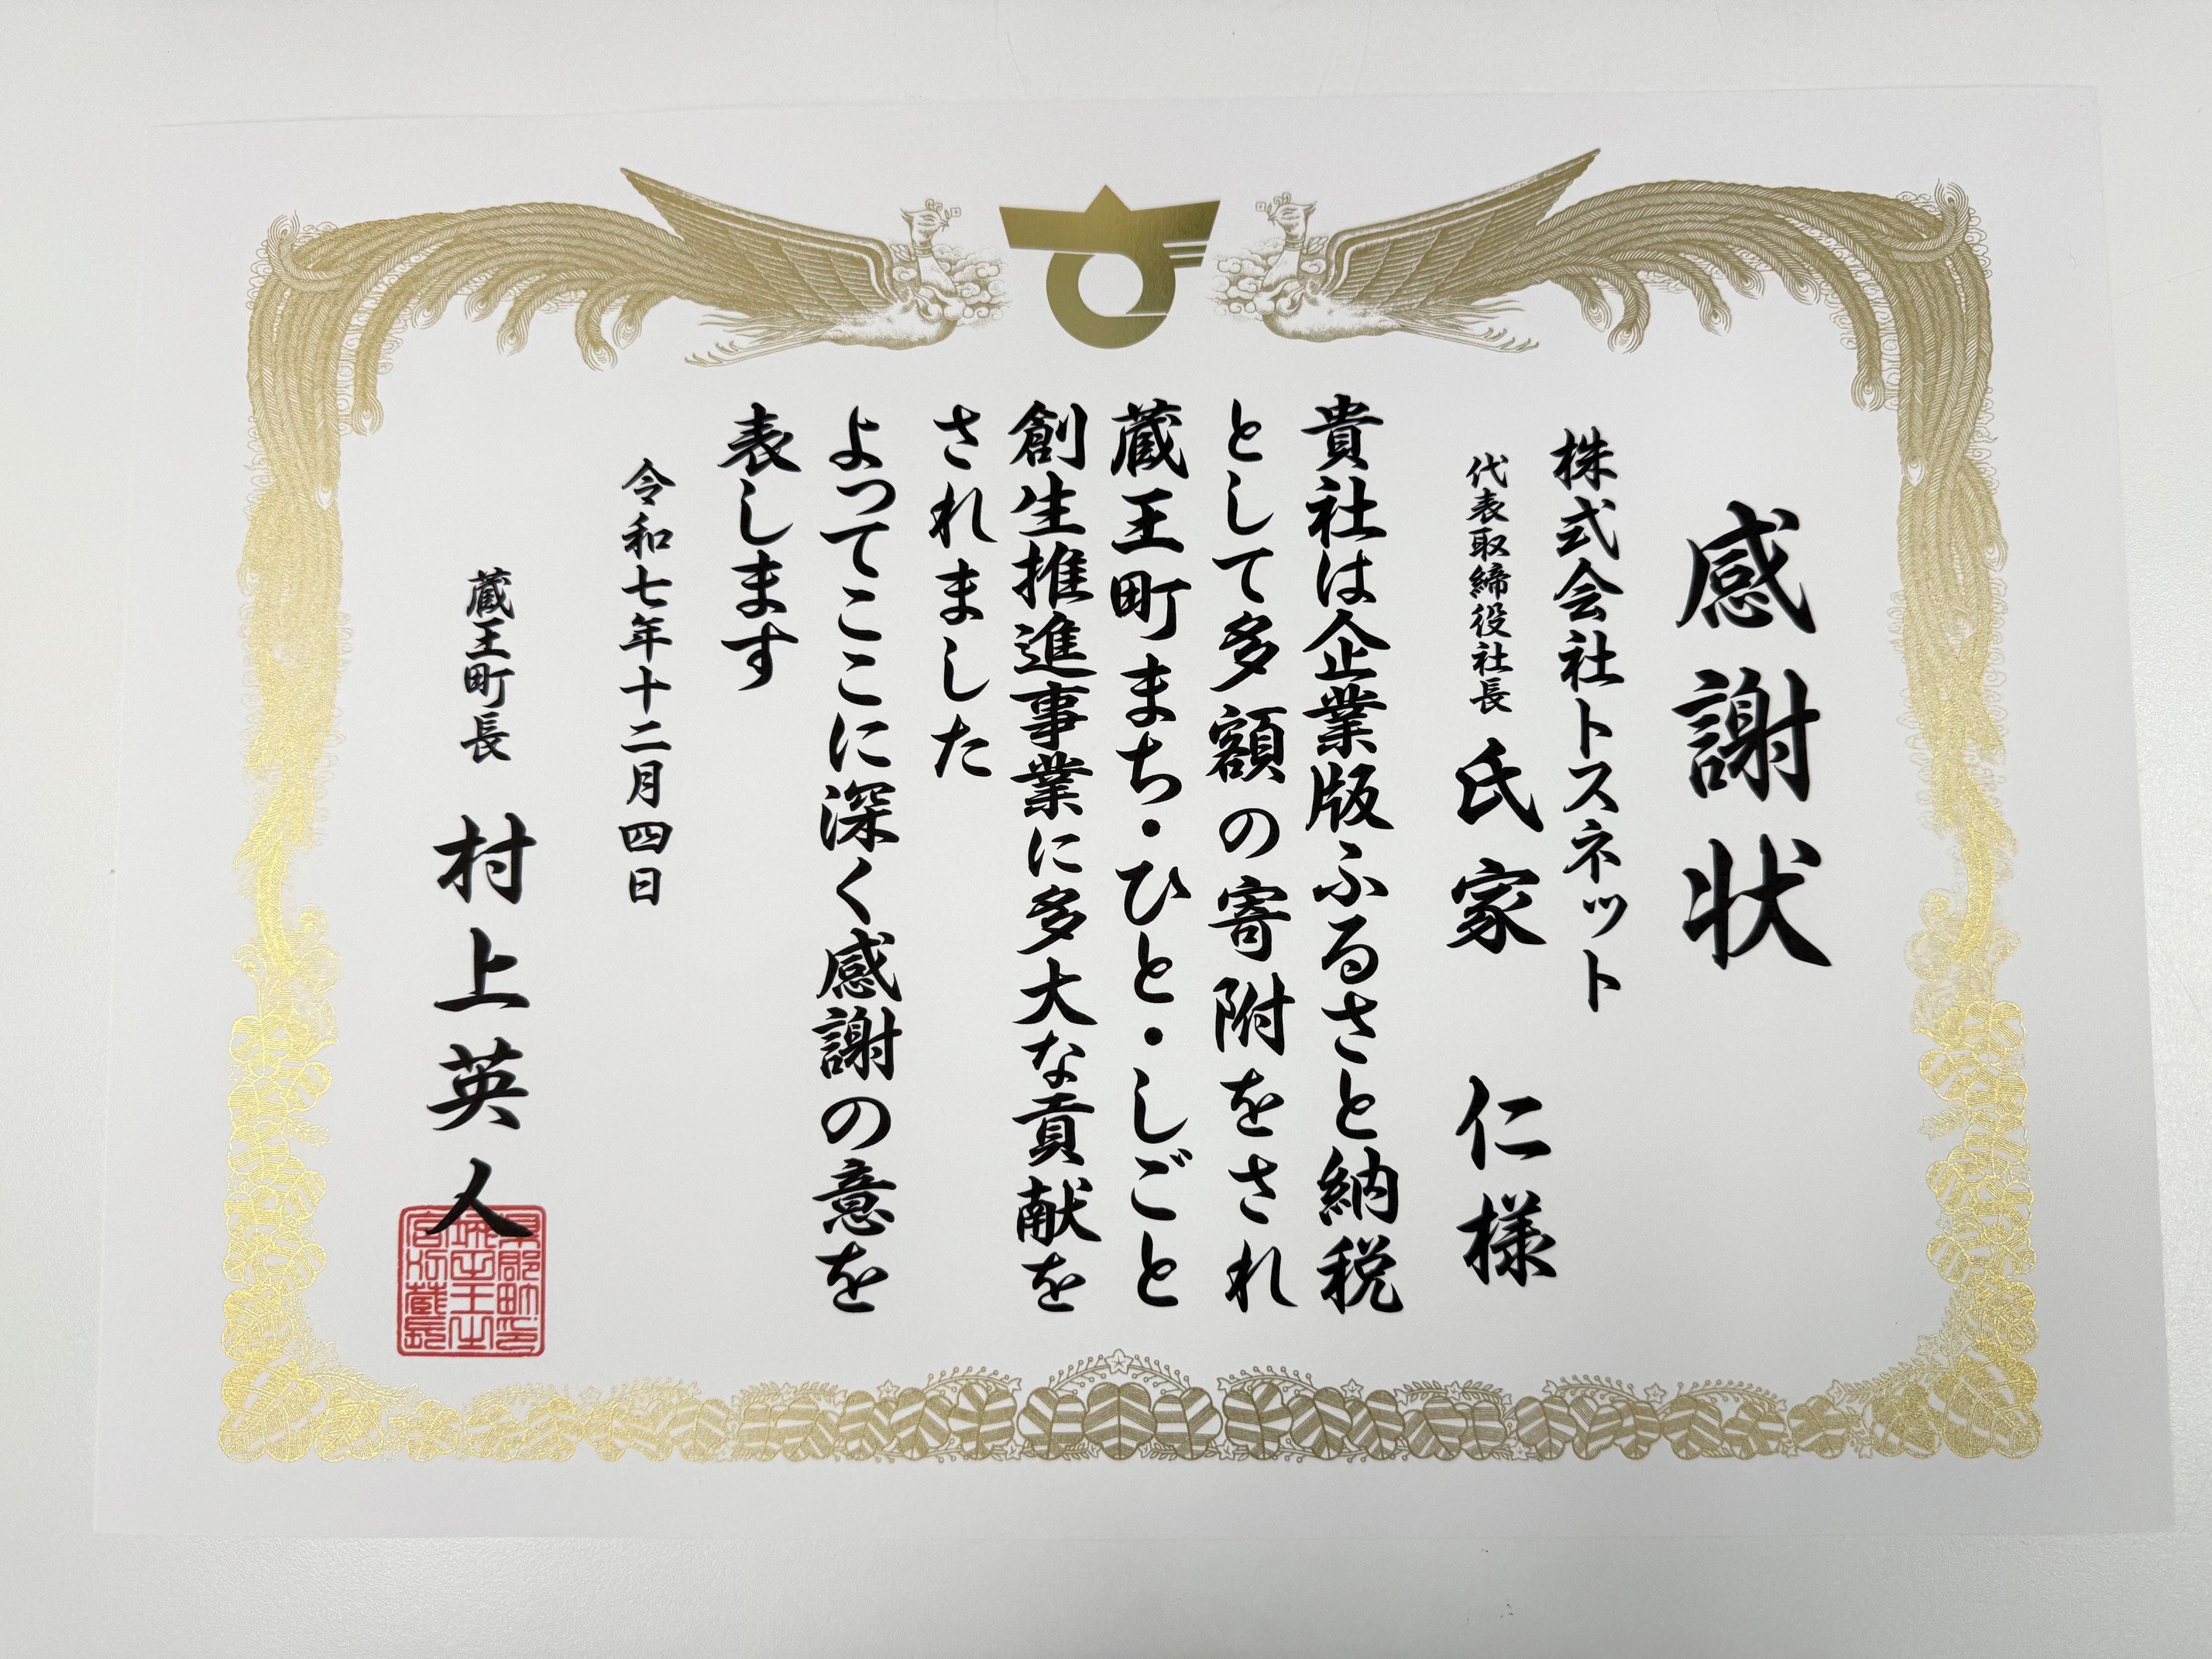 感謝状
株式会社トスネット
代表取締役社長 氏家 仁様
貴社は企業版ふるさと納税
として多額の寄附をされ
蔵王町まち・ひと・しごと
創生推進事業に多大な貢献を
されました
よってここに深く感謝の意を
表します
令和七年十二月四日
蔵王町長 村上英人